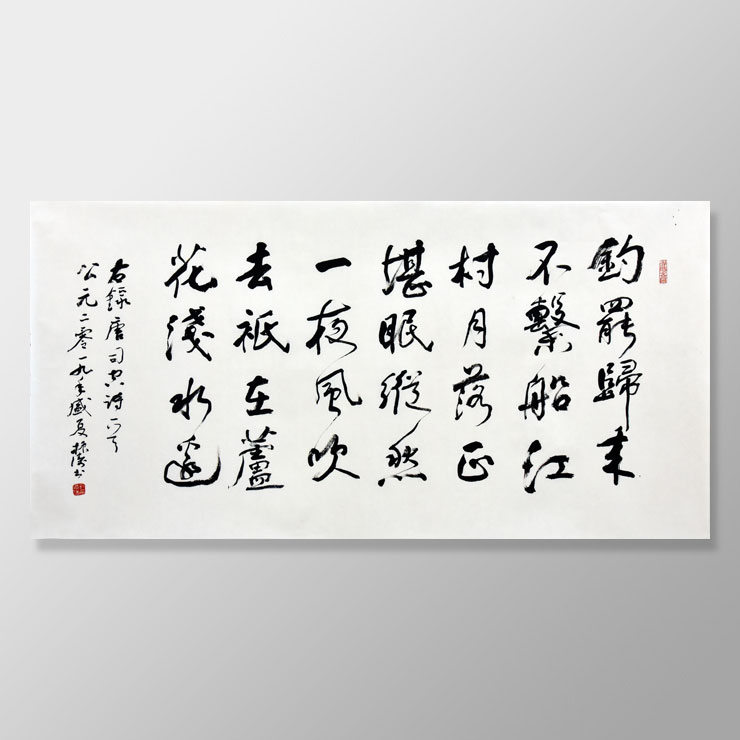 釣罷歸来
不繫船江
村月落正
堪眠縱然
一夜風吹
去衹在蘆
花淺水邊
右錄唐司空詩一首
公元二零一九年盛夏